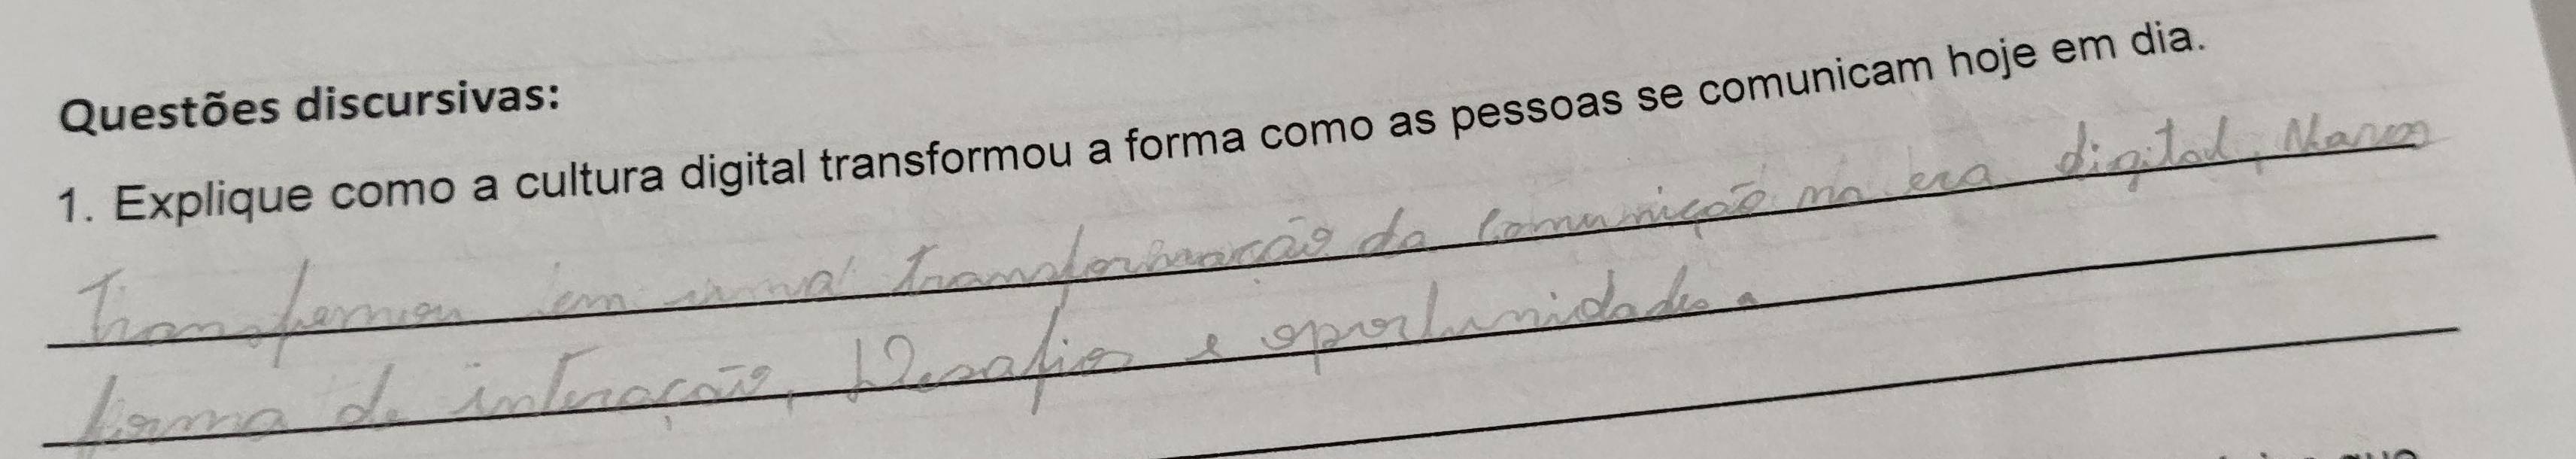 Questões discursivas:
1. Explique como a cultura digital transformou a forma como as pessoas se comunicam hoje em dia.
em uma transformação da comunicação na era digital,
forma de interação, Desafios e oportunidades.